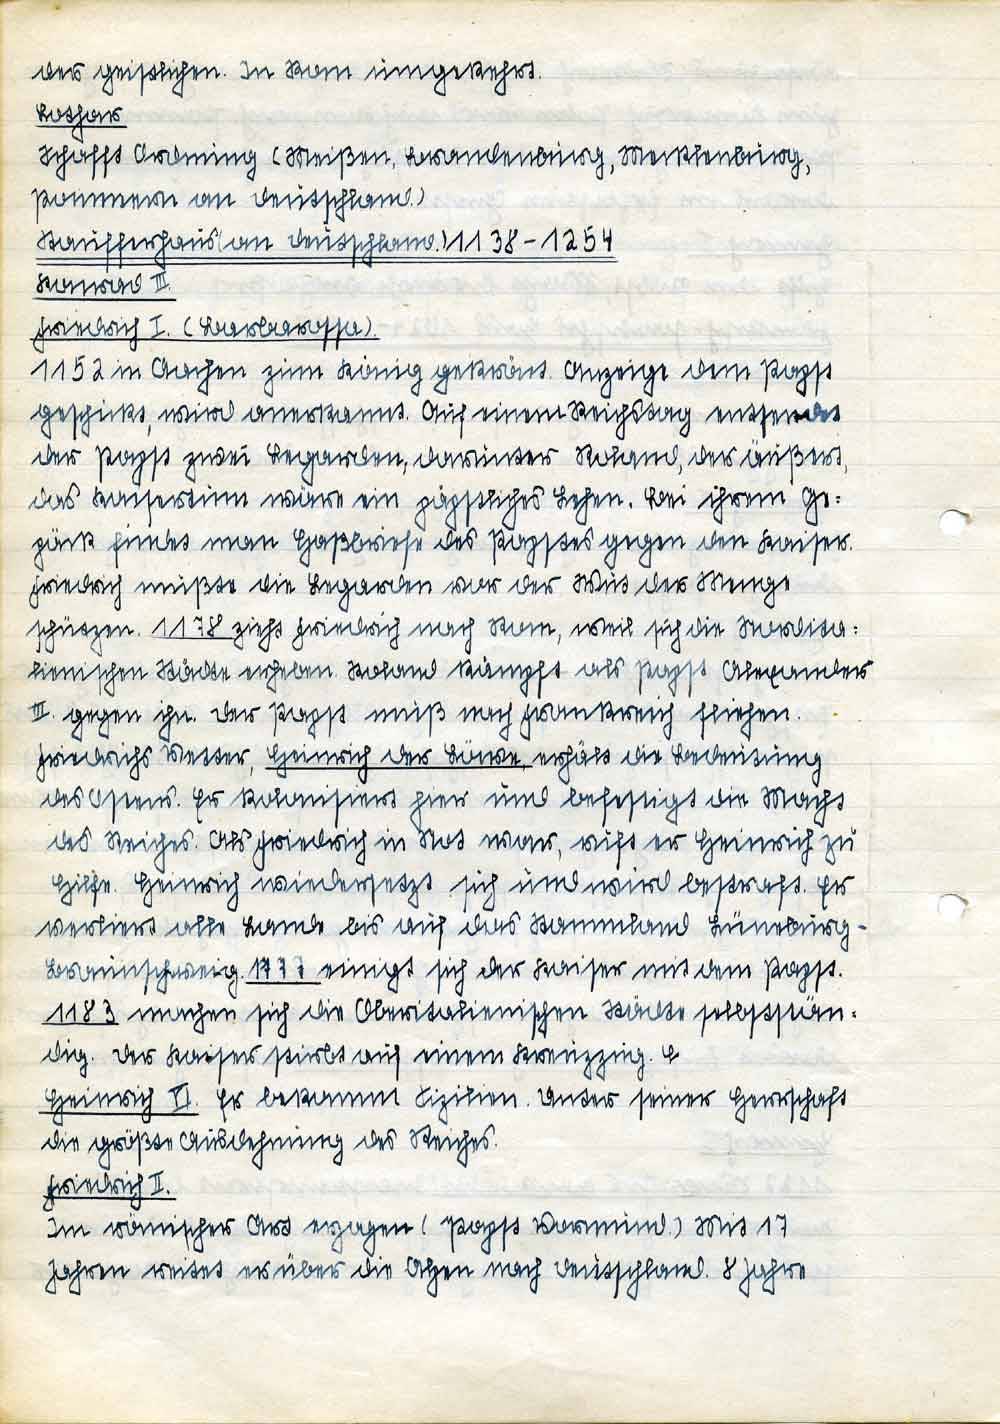 der geistlichen. In Rom umgekehrt.
Lothar
Schafft Ordnung (Meißen, Brandenburg, Mecklenburg,
Pommern an Deutschland.)
Staufferhaus (an Deutschland.) 1138-1254
Konrad III.
Friedrich I. (Barbarossa).
1152 in Aachen zum König gekrönt. Anzeige dem Papst
geschickt, wird anerkannt. Auf einem Reichstag entsendet
der Papst zwei Legarden, darunter Roland, der äußert,
das Kaisertum wäre ein päpstliches Lehen. Bei ihrem Ge=
päck findet man Haßbriefe des Papstes gegen den Kaiser.
Friedrich mußte die Legarden vor der Wut der Menge
schützen. 1178 zieht Friedrich nach Rom, weil sich die Nordita=
lienischen Städte erheben. Roland kämpft als Papst Alexander
III. gegen ihn. Der Papst muß nach Frankreich fliehen.
Friedrichs Vetter, Heinrich der Löwe, erhält die Bedeutung
des Ostens. Er kolonisiert hier und befestigt die Macht
des Reiches. Als Friedrich in Not war, ruft er Heinrich zu
Hilfe. Heinrich wiedersetzt sich und wird bestraft. Er
verliert alle Lande bis auf das Stammland Lüneburg-
Braunschweig. 1177 einigt sich der Kaiser mit dem Papst.
1183 machen sich die Oberitalienischen Städte selbststän=
dig. Der Kaiser stirbt auf einem Kreuzzug.
Heinrich VI. Er bekommt Sizilien. Unter seiner Herrschaft
die größte Ausdehnung des Reiches.
Friedrich II.
Im römischer Art erzogen (Papst Vormund.) Mit 17
Jahren reitet er über die Alpen nach Deutschland. 8 Jahre